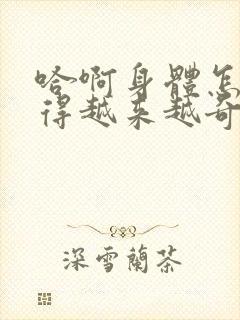 哈啊身體怎
得越来越奇
深雪蘭茶